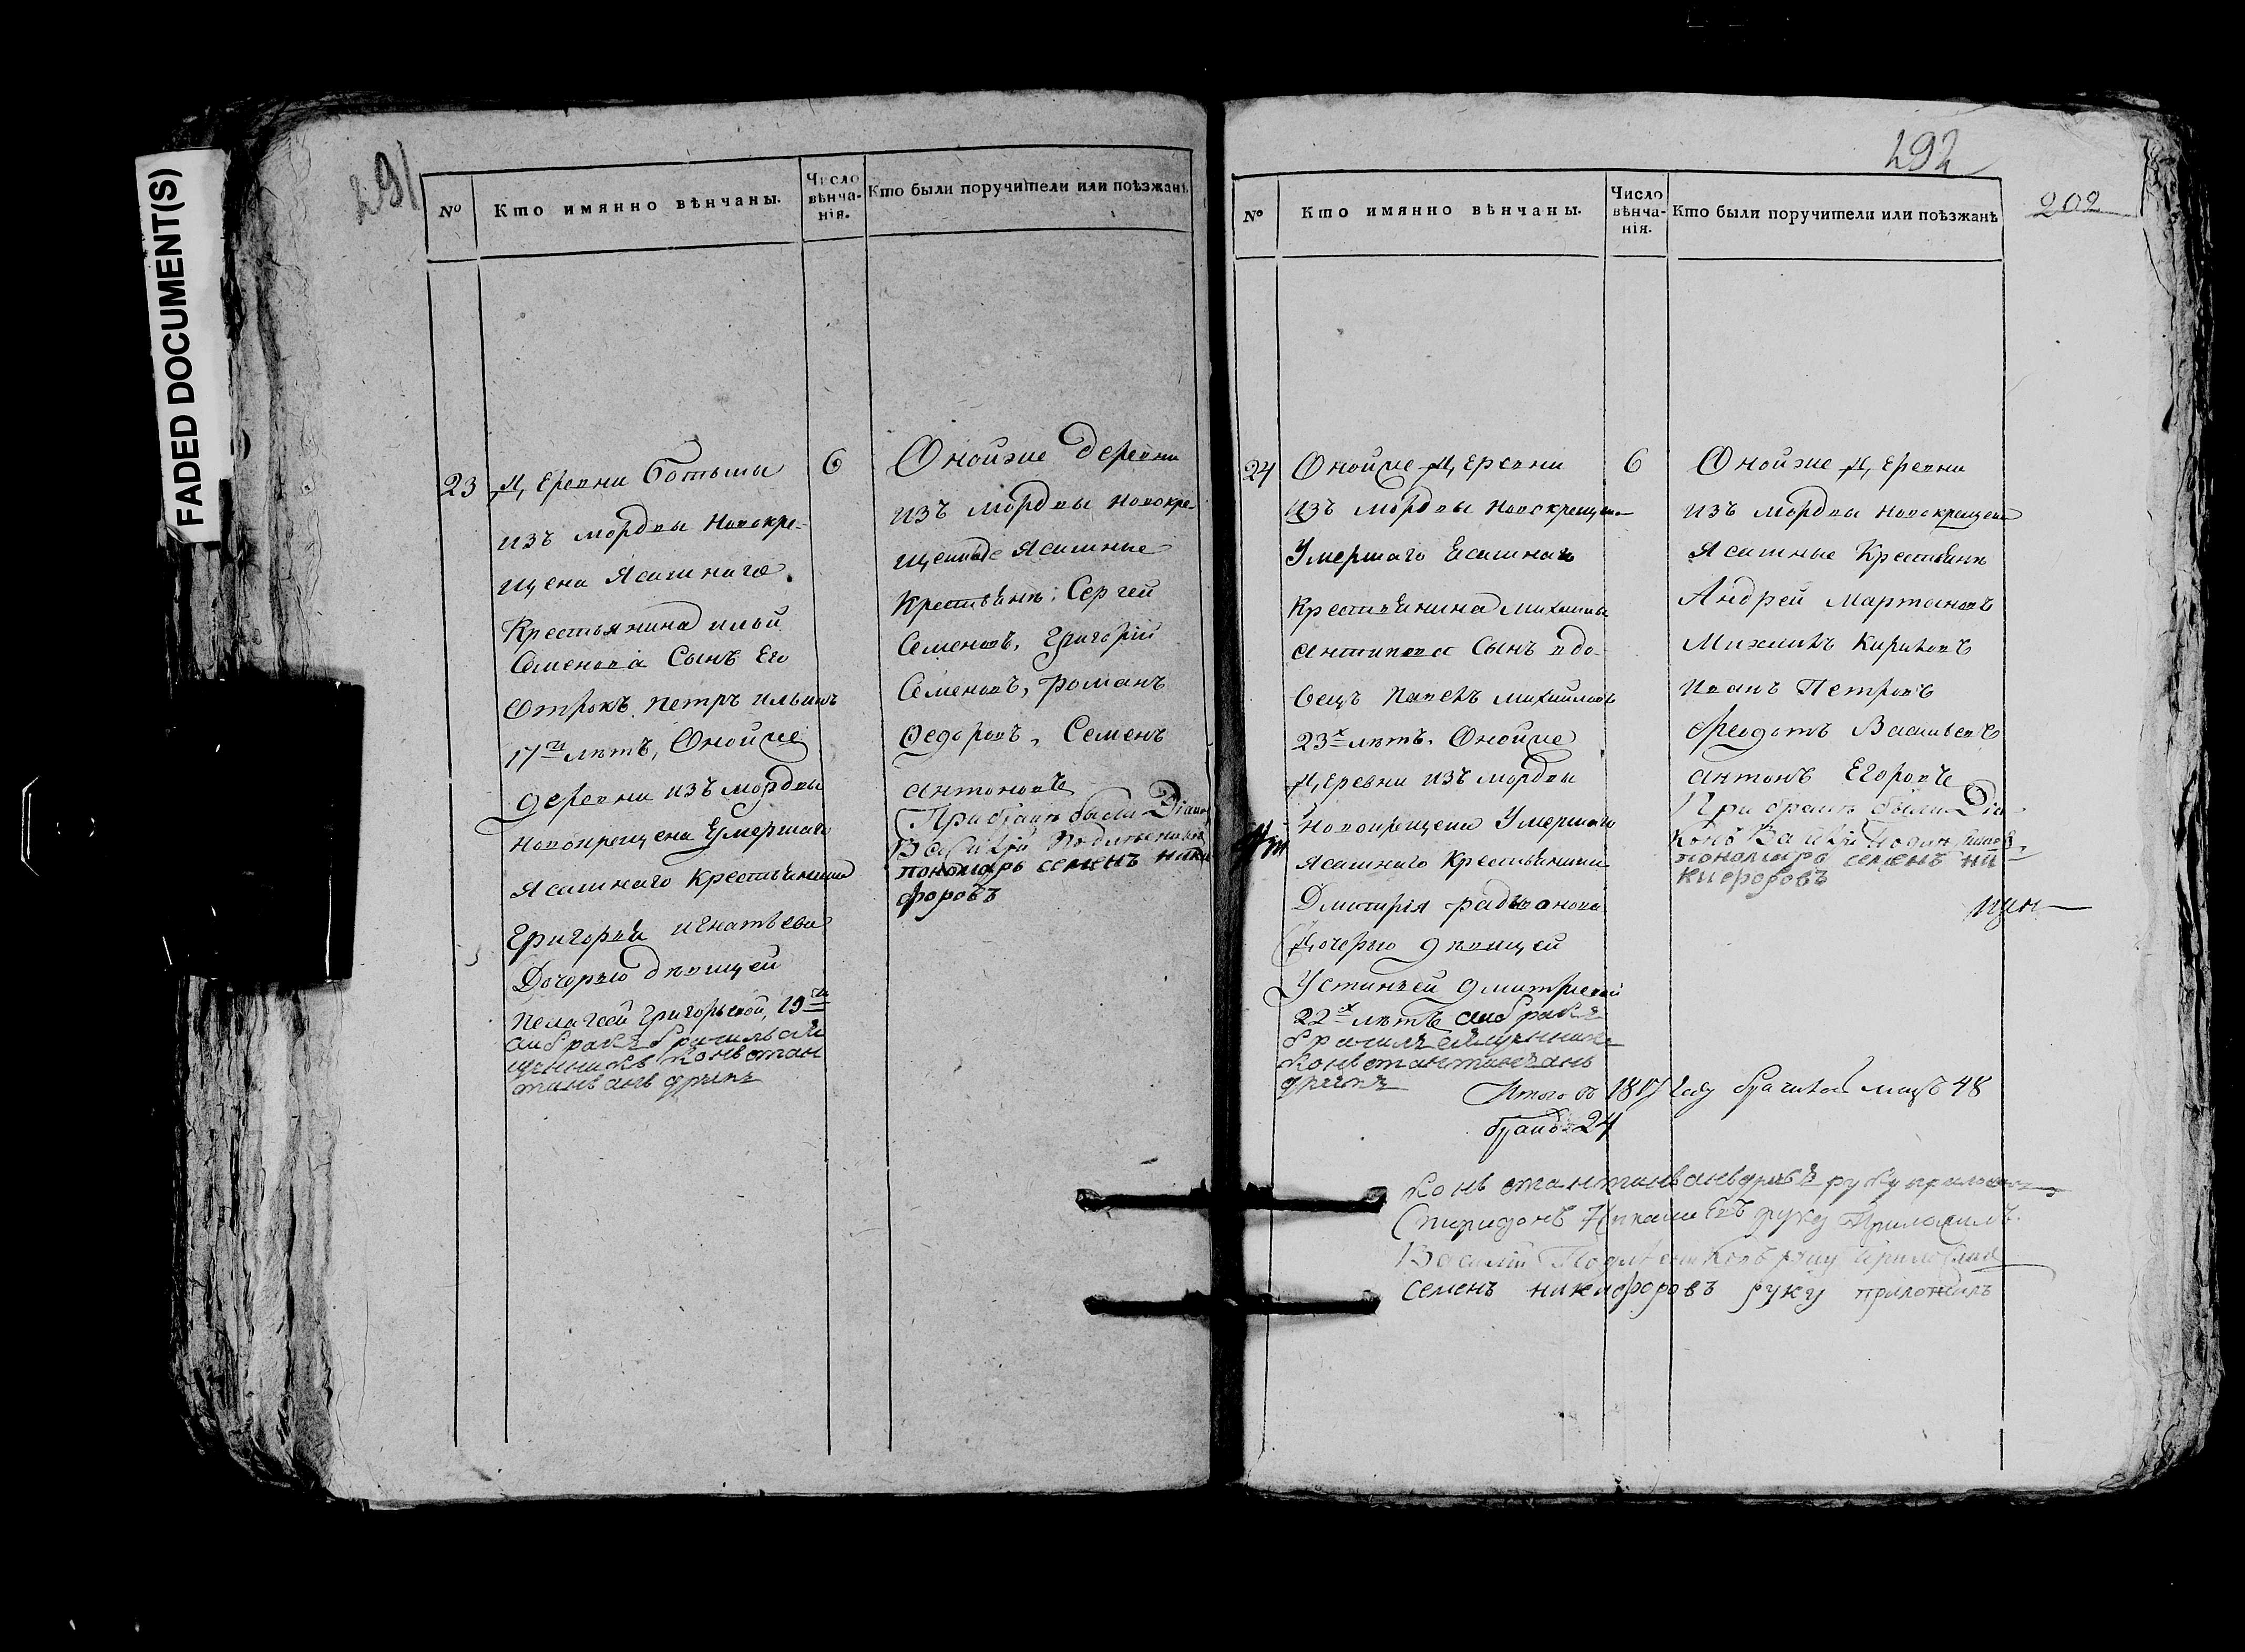 FADED DOCUMENT(S)
291
№
Кто имянно вѣнчаны.
Число
вѣнча-
нія.
Кто были поручители или поѣзжанѣ
23
Деревни Ботьмы
изъ мордвы новокре-
щена Ясашнаго
Крестьянина ильи
Семенова Сынъ Его
Отрокъ петръ ильинъ
17ти лѣтъ, Онойже
деревни изъ мордвы
новокрещена Умершаго
Ясашнаго Крестьянина
Григорья игнатьева
Дочерью дѣвицей
пелагеей Григорьевой, 19ти
сиі бракъ
щенникъ констан
тинъ андрѣевъ
6
Онойже деревни
изъ мордвы новокре-
щены Ясашные
Крестьянѣ: Сергей
Семеновъ, Григорій
Семеновъ, романъ
Федоровъ, Семенъ
антоновъ
При бракѣ были Діако
Василій Подлесников
пономарь семенъ ники
форовъ
292
202
№
Кто имянно вѣнчаны.
Число
вѣнча-
нія.
Кто были поручители или поѣзжанѣ
24
Онойже Деревни
изъ мордвы новокрещена
Умершаго Ясашнаго
Крестьянина михаила
антипова Сынъ вдо-
вецъ павелъ михайловъ
23х лѣтъ. Онойже
Деревни изъ мордвы
новокрещена Умершаго
ясашнаго Крестьянина
Дмитрія радіонова
Дочерью дѣвицей
Устиньей дмитріевой
22х лѣтъ сиі бракъ
констан­тинъ анъ
дрѣевъ
6
Онойже Деревни
изъ мордвы новокрещены
Ясашные Крестьянѣ
Андрей Мартоновъ
Михаилъ Кириловъ
иванъ Петровъ
Феодотъ Васильевъ
антонъ Егоровъ
При бракѣ были Діа
конъ Василій Подлесников
пономарь семенъ ни
кифоровъ
Итого въ 18 году браков лицъ 48
браковъ 24
констан­тинъ андрѣевъ руку приложилъ
Спиридонъ руку Приложилъ.
Василій Подлесниковъ руку приложилъ
семенъ никифоровъ руку приложилъ